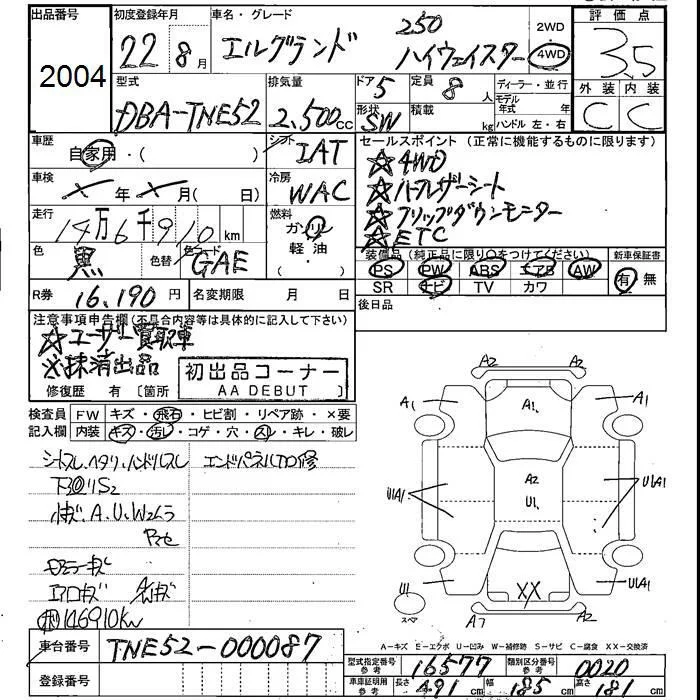 出品番号 初度登録年月 車名・グレード 2WD 評価点
2004 22 8月 エルグランド 250 ハイウェイスター 4WD 3.5
型式 排気量 ドア 5 定員 8人 ディーラー・並行 外装 内装
DBA-TNE52 2,500cc 形状 SW 積載 kg モデル年式 年 ハンドル 左・右 C C
車歴 自家用・( ) シフト IAT セールスポイント (正常に機能するものに限ります)
☆4WD
車検 ×年×月(日) 冷房 WAC ☆ハーフレザーシート
走行 14万6千910km 燃料 ガソリン・軽油・( ) ☆フリップダウンモニター
☆ETC
色 黒 色替 色コード GAE 装備品 (純正品に限り○をつけてください) 新車保証書
PS PW ABS エアB AW 有 無
SR ナビ TV カワ
R券 16,190円 名変期限 月 日 後日品
注意事項申告欄 (不具合内容等は具体的に記入して下さい)
☆ユーザー買取車
※抹消出品 初出品コーナー
AA DEBUT
修復歴 有 [箇所
検査員 FW キズ・飛石・ヒビ割・リペア跡・×要
記入欄 内装 キズ・汚レ・コゲ・穴・スレ・キレ・破レ
シートスレ、ヘタリ、ハンドルスレ エンドパネル
下回リS2
小キズ、A.U.W2ムラ
ヤマセ
エアロキズ
146910Km
A2 A2
A1 A1. A1
A2
U1A1 U1. U1A1
U1 XX U1A1
スペア A7 A2
A-キズ E-エクボ U-凹み W-補修跡 S-サビ C-腐食 XX-交換済
車台番号 TNE52-000087
型式指定番号 参考 16577 類別区分番号 参考 0020
登録番号 車庫証明用 参考 長さ 491cm 幅 185cm 高さ 181cm